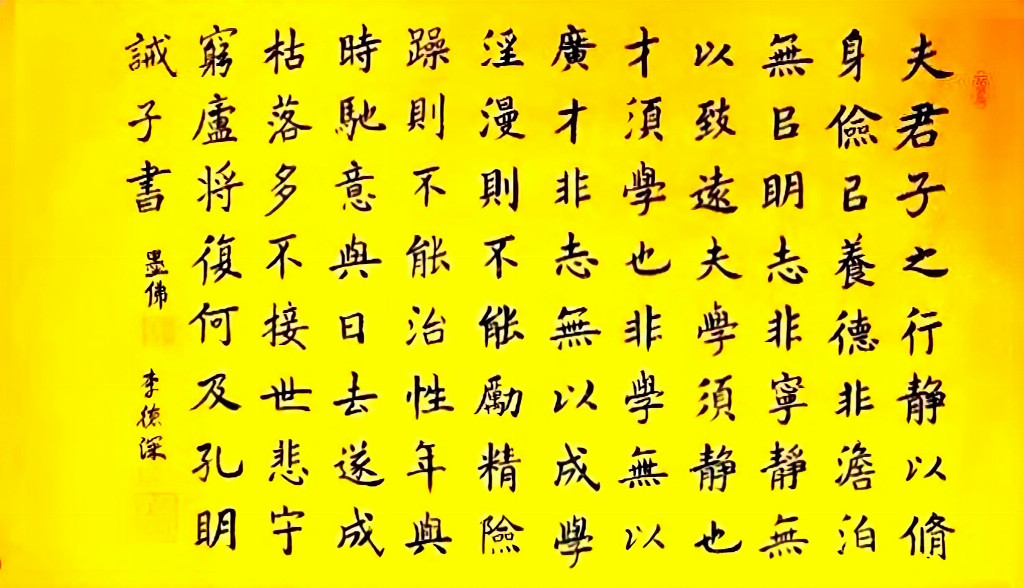 夫君子之行静以脩
身儉㠯養德非澹泊
無㠯明志非寧静無
以致遠夫學須静也
才須學也非學無以
廣才非志無以成學
淫漫則不能勵精險
躁則不能治性年與
時馳意與日去遂成
枯落多不接世悲守
窮廬将復何及孔明
誡子書
墨佛
李德深